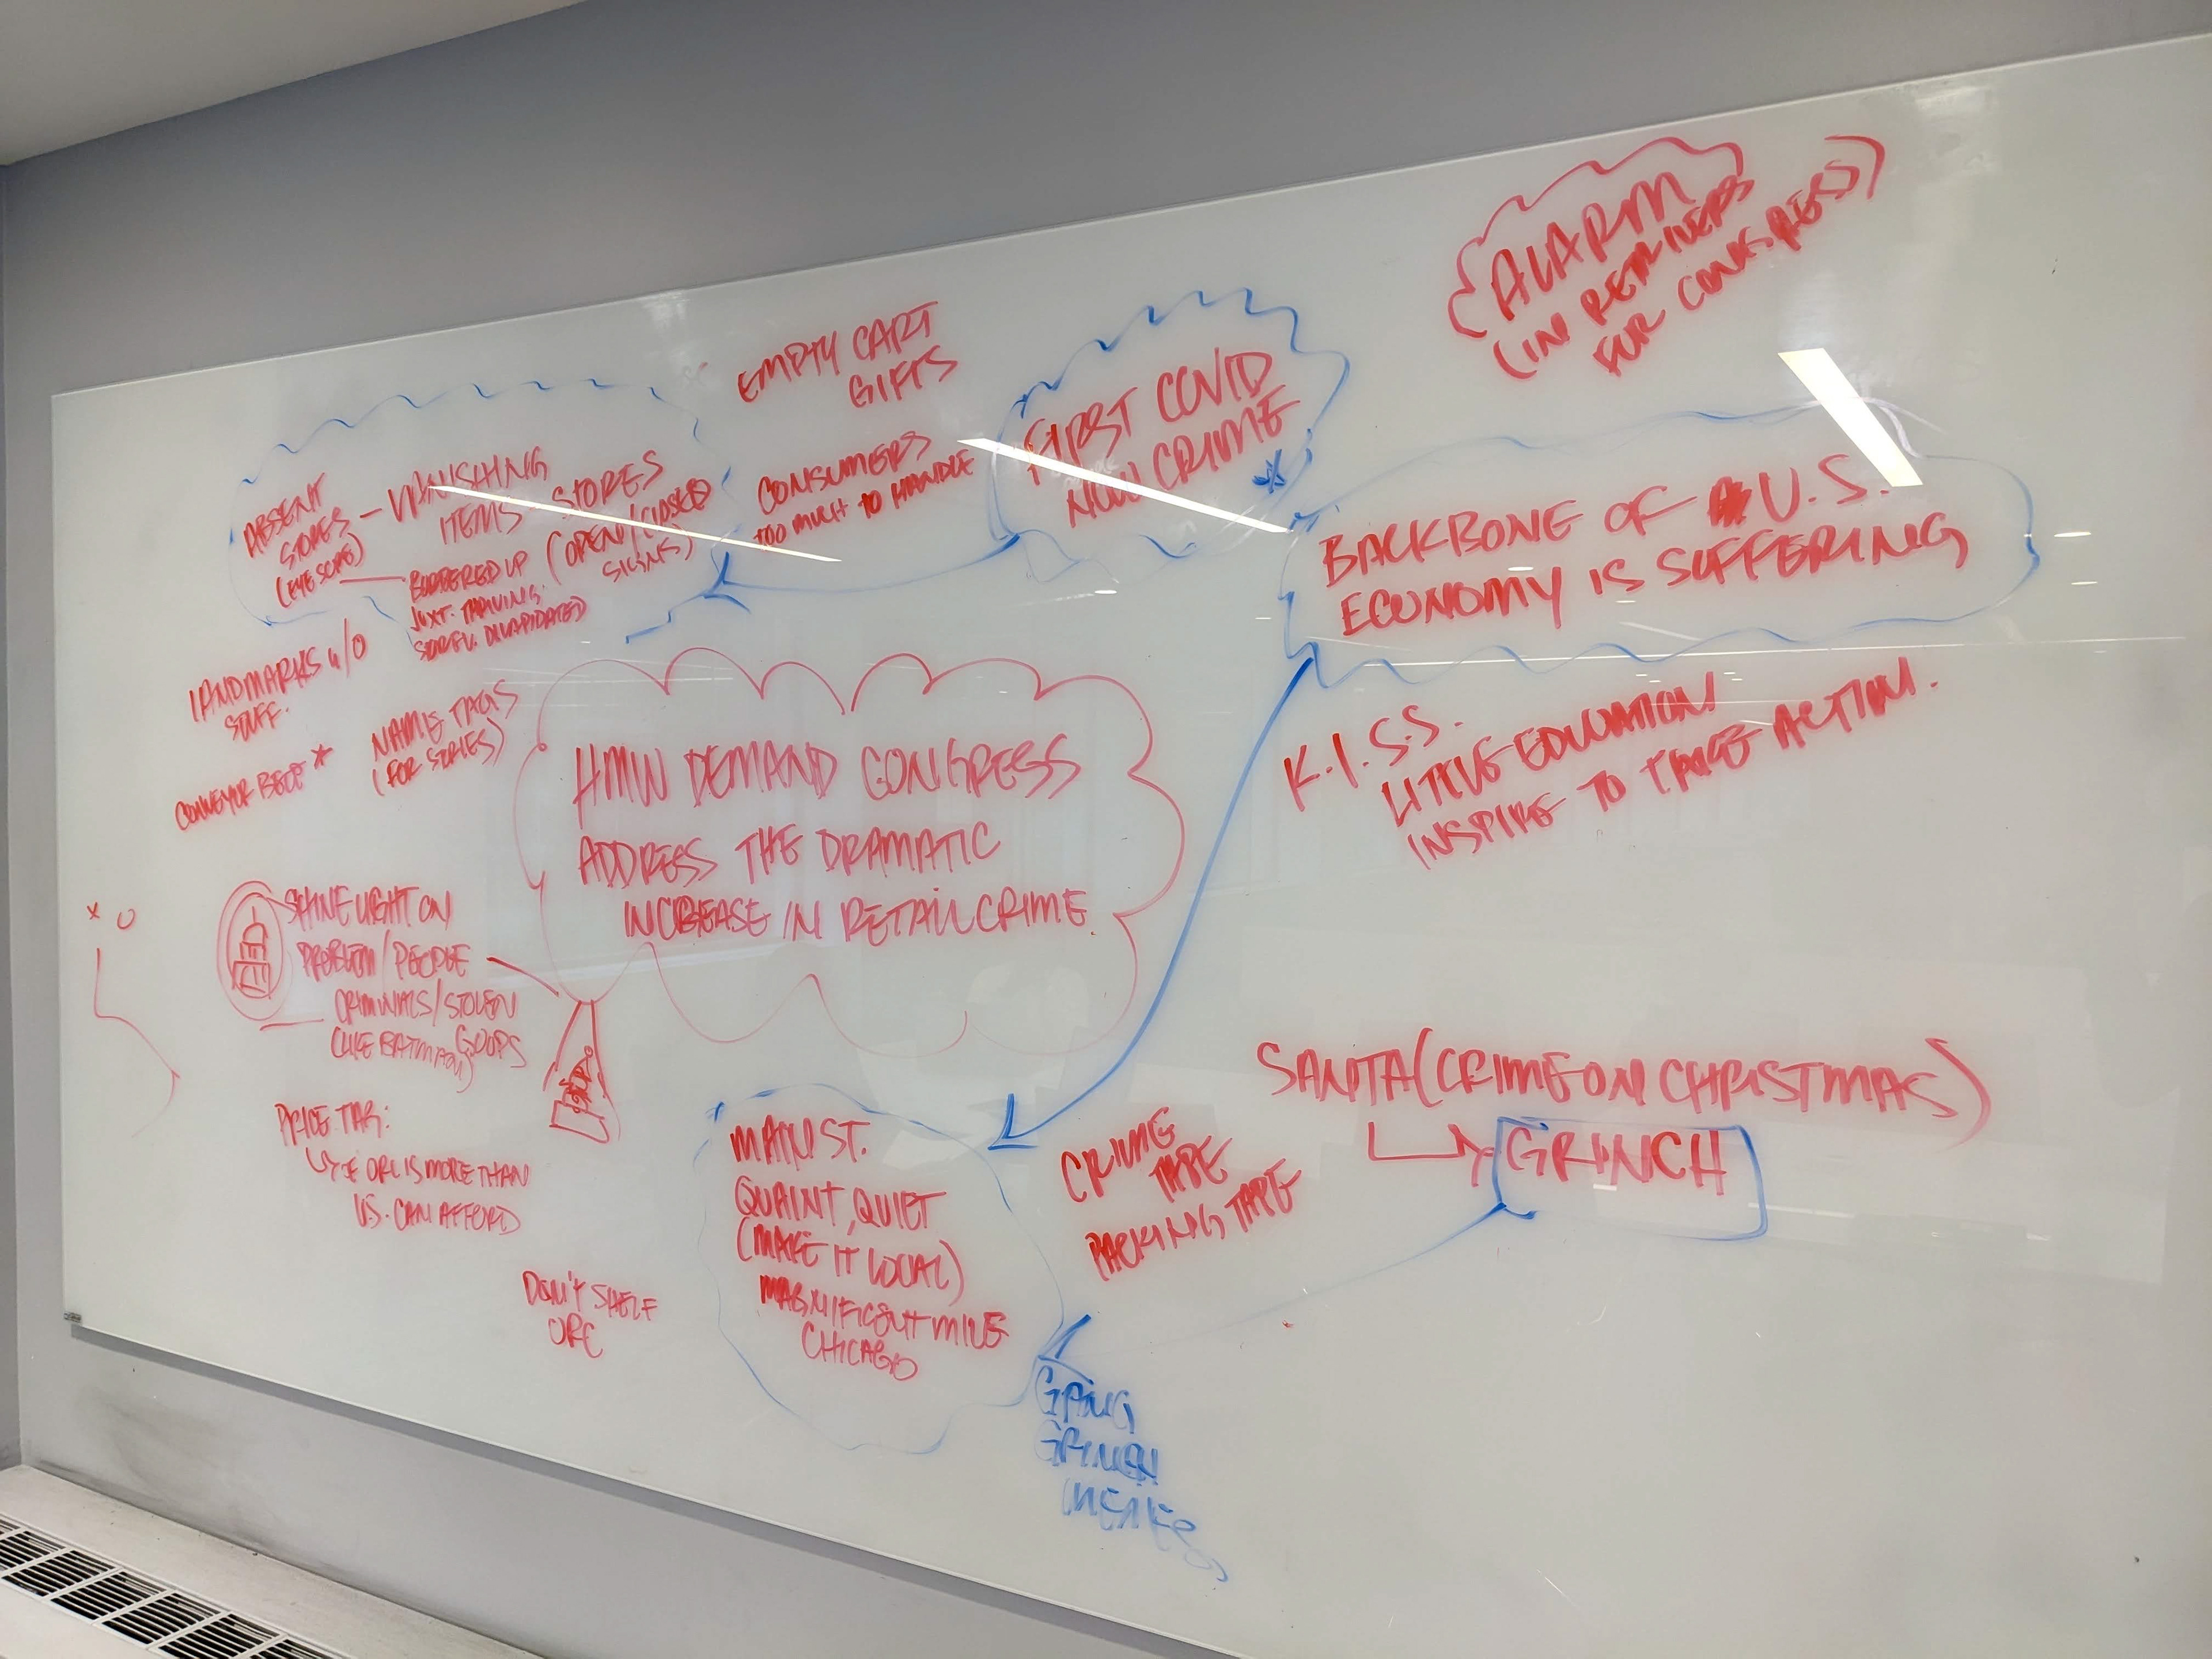 ALARM
(IN RETRIEVERS
FOR CONGRESS)
EMPTY CART
GIFTS
FIRST COVID
NOW CRIME
*
CONSUMERS
TOO MUCH TO HANDLE
ABSENT
STORES
- VANISHING
ITEMS
STORES
(OPEN/CLOSED
SIGNS)
BOARDED UP
JUXT. THRIVING
DILAPIDATED)
BACKBONE OF U.S.
ECONOMY IS SUFFERING
LANDMARKS W/O
STUFF.
NAME TAGS
(FOR STORIES)
CONVEYOR BELT *
HMW DEMAND CONGRESS
ADDRESS THE DRAMATIC
INCREASE IN RETAIL CRIME
K.I.S.S.
LITTLE EDUCATION
INSPIRE TO TAKE ACTION.
X O
SHINE LIGHT ON
PROBLEM/PEOPLE
CRIMINALS/STOLEN
GOODS
(LIKE BATMAN)
PRICE TAG:
ORC IS MORE THAN
U.S. CAN AFFORD
DON'T SHELF
ORC
MAIN ST.
QUAINT, QUIET
(MAKE IT LOCAL)
MAGNIFICENT MILE
CHICAGO
CRIME
TAPE
PACKING TAPE
SANTA (CRIME ON CHRISTMAS)
GRINCH
GANG
GRINCH